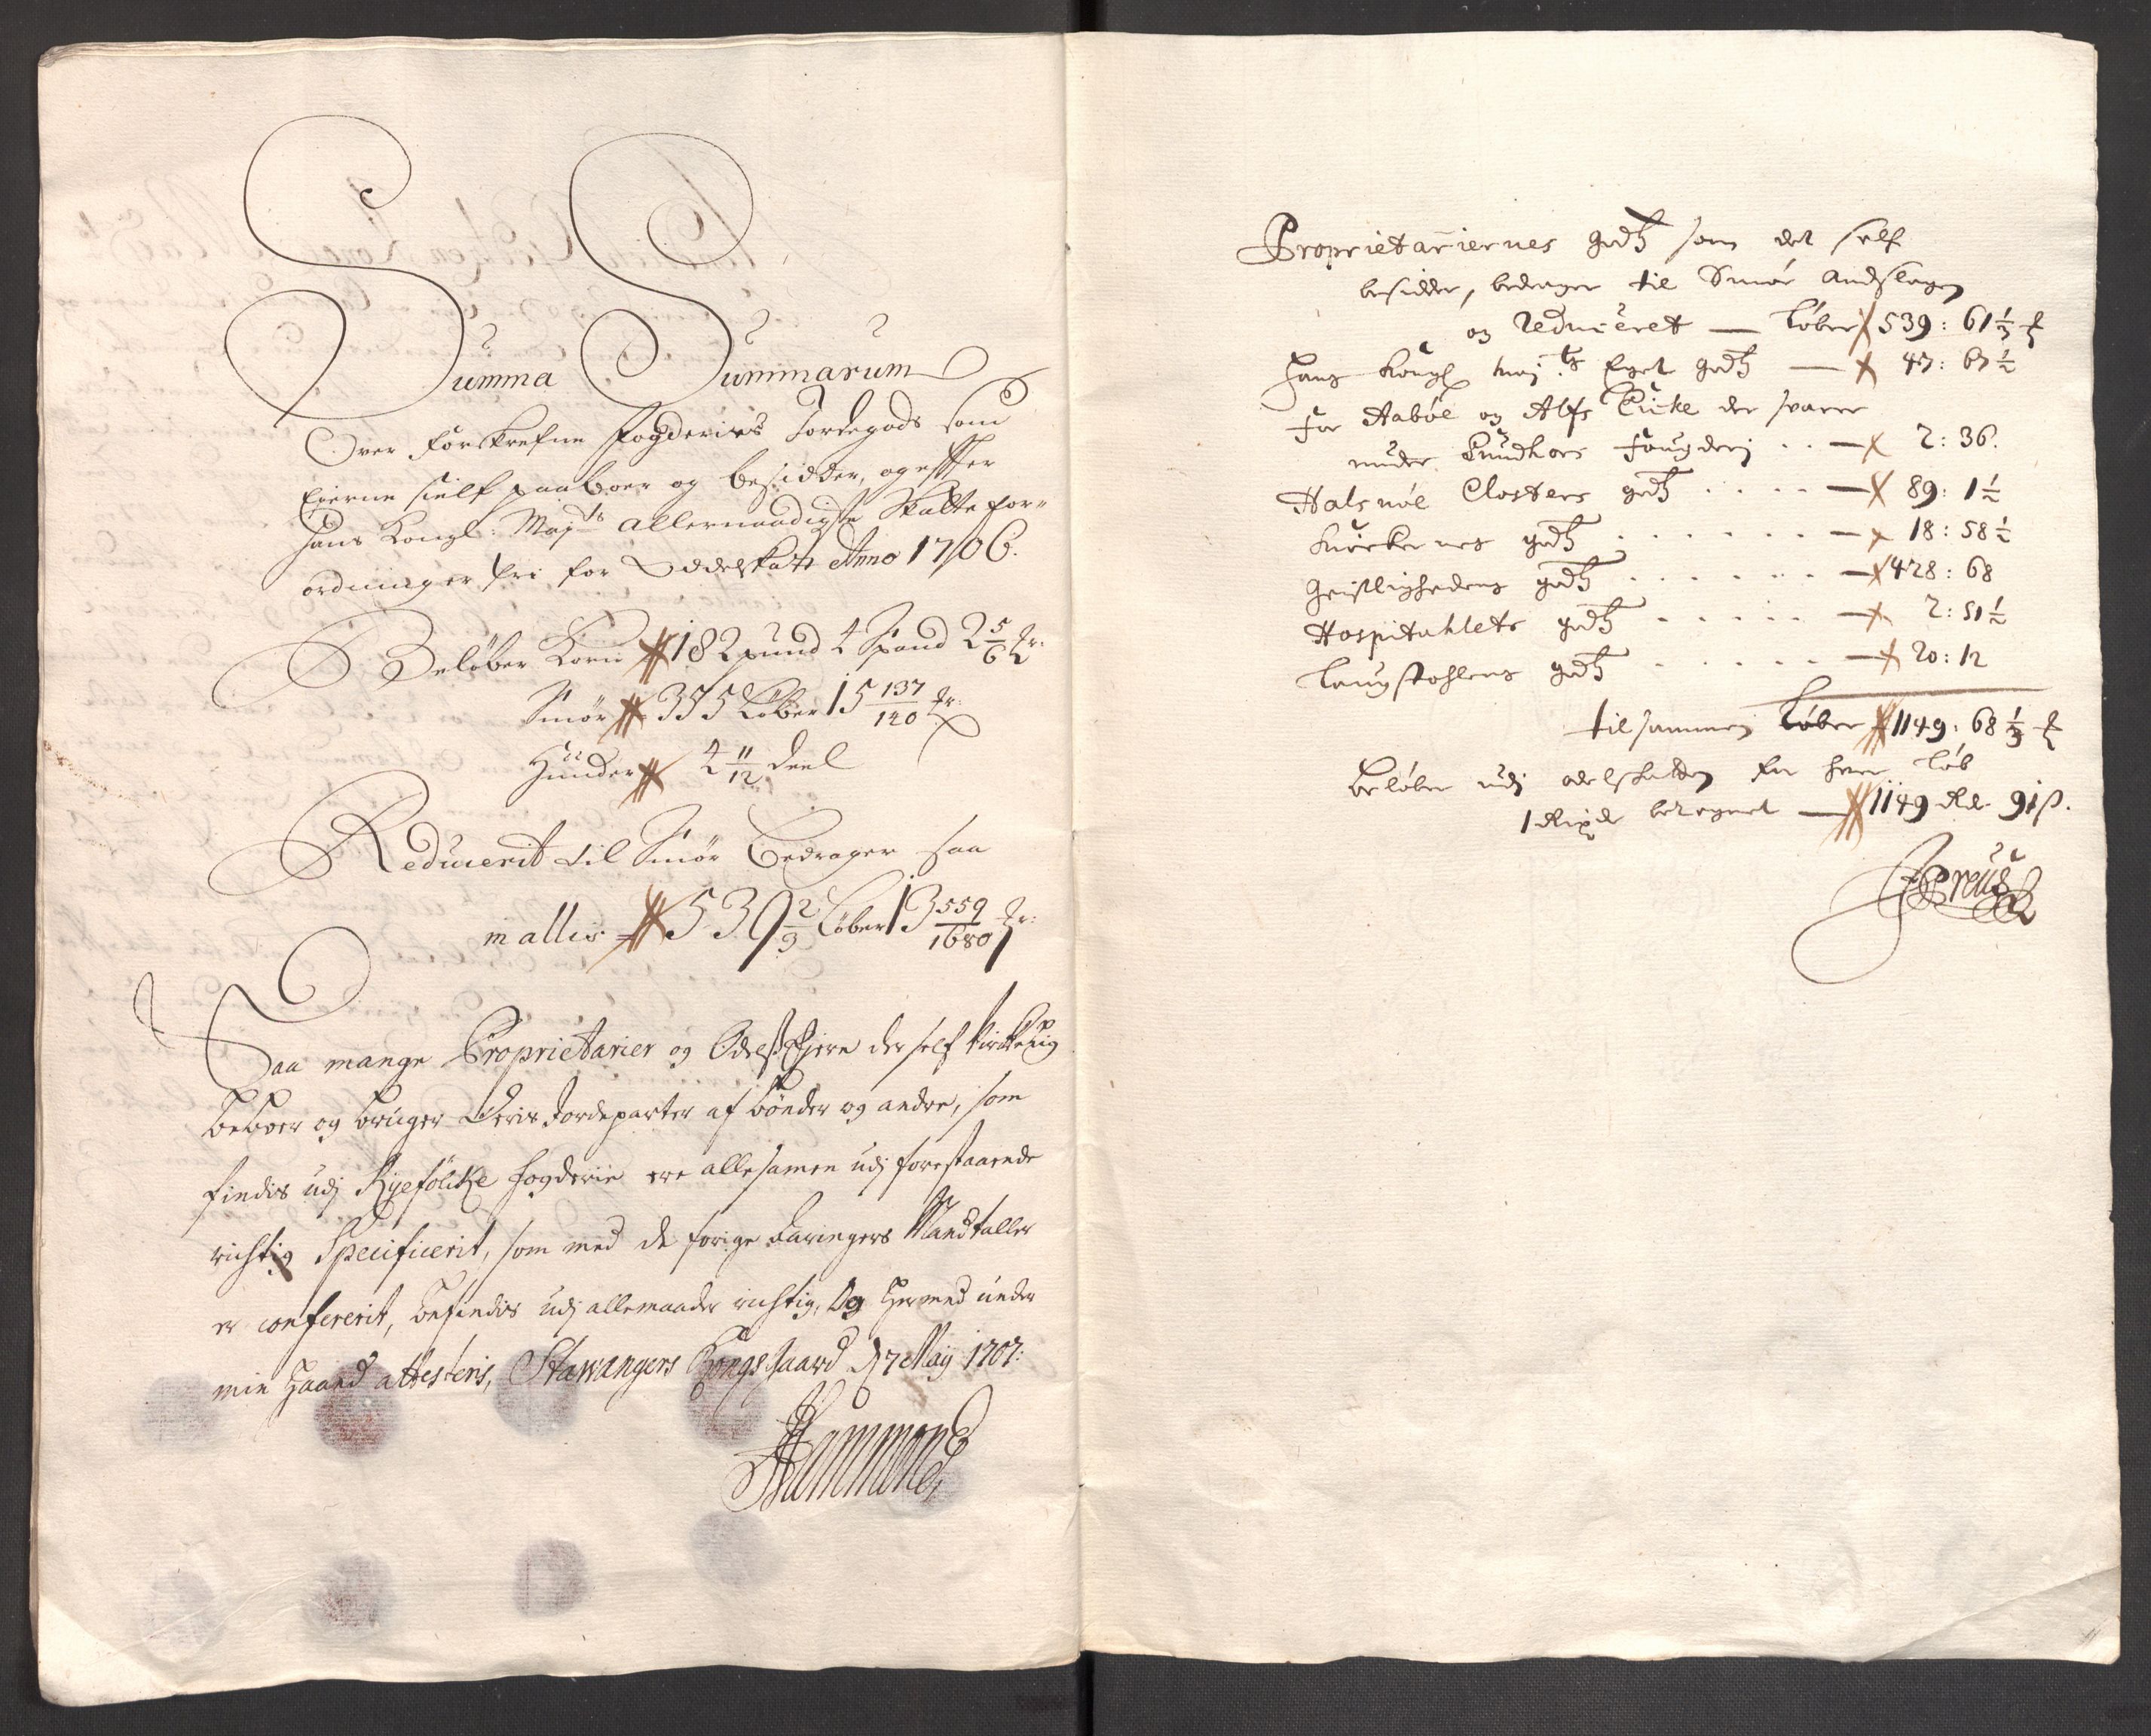 Summa Summarum
Over forskrefne Fogderies Jordegods som
Eierne sielf paaboer og besidder, og effter
Hans Kongl: Mayts allernaadigste Skatte for-
ordninger fri for Oddelskatt Anno 1706.
Beløber Korn 182 pund 4 Spand 2 5/6 
Smør 375 Løber 15 137/140 
Hunder 4 11/12 deel
Reducerit til Smør Bedrager saa
in allis 539 2/9 Løber 13 559/1680 
Saa mange Proprietarier og Odels Ejere der self
beboer og bruger deris Jordeparter af bønder og andre, som
findis udj Ryefölcke fogderie ere allesamen udj forestaaende
richtig Specificerit, som med de forige Mandtaller
er confererit, befindis udj allemaader richtig, Og hermed under
min Haand attesteris, Stawangers Kongsgaard d 7 May 1707:
Hammond
Proprietariernes godtz som det self
besidder, bedrager til Smør Andslagen
og Reduceret — Løber 539: 61 1/3
Hans Kongl may:ts Eget godtz — 47: 67 1/2
For Aabøe og Alfs der svarer
under Sundhors fougderj . . — 2: 36.
Halsnöe Closters godtz . . . . — 89: 1 1/2
Kirkernes godtz . . . . . . — 18: 58 1/2
Geistlighedens godtz . . . . . . — 428: 68
Hospitahlets godtz . . . . . — 2: 51 1/2
Laugstohlens godtz . . . . . — 20: 12
tilsammen Løber 1149: 68 1/3
Beløber udj odelskatten for hver Løb
1 Rixdr beregnet — 1149 Rdr 91 ß.
Preus